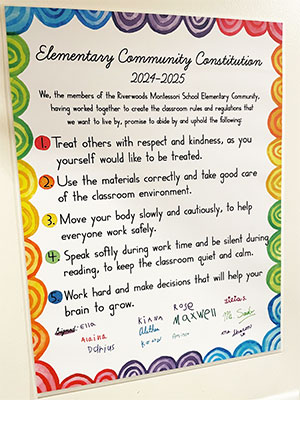 Elementary Community Constitution
2024-2025
We, the members of the Riverwoods Montessori School Elementary Community,
having worked together to create the classroom rules and regulations that
we want to live by, promise to abide by and uphold the following:
1. Treat others with respect and kindness, as you
yourself would like to be treated.
2. Use the materials correctly and take good care
of the classroom environment.
3. Move your body slowly and cautiously, to help
everyone work safely.
4. Speak softly during work time and be silent during
reading, to keep the classroom quiet and calm.
5. Work hard and make decisions that will help your
brain to grow.
Ella Kiana Rose
Alaina Maxwell